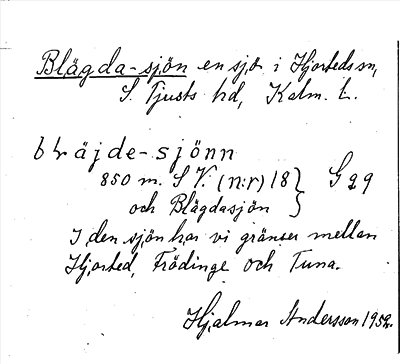 Blägda-sjön en sjö i Hjorteds sn,
S. Tjusts hd, Kalm. L.
bläjde-sjönn
850 m. S V. (n:r) 18 } G 29
och Blägdasjön
I den sjön har vi gränser mellan
Hjorted, Frödinge och Tuna.
Hjalmar Andersson 1959.